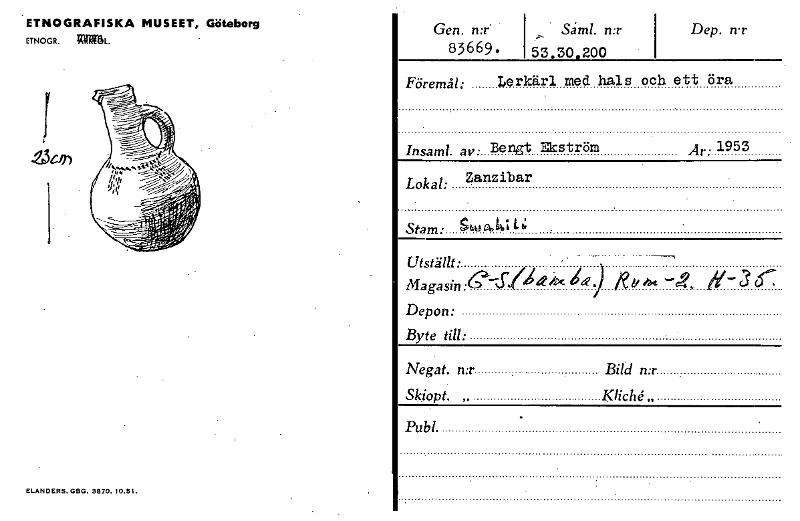 ETNOGRAFISKA MUSEET, Göteborg
ETNOGR.
23cm
ELANDERS. GBG. 3870. 10.51.
Gen. n:r Saml. n:r Dep. n:r
83669. 53.30.200
Föremål: Lerkärl med hals och ett öra
Insaml. av: Bengt Ekström År: 1953
Lokal: Zanzibar
Stam: Swahili
Utställt:
Magasin: G-S.(bamba.) Rum-2. H-35.
Depon:
Byte till:
Negat. n:r Bild n:r
Skiopt. „ Kliché „
Publ.